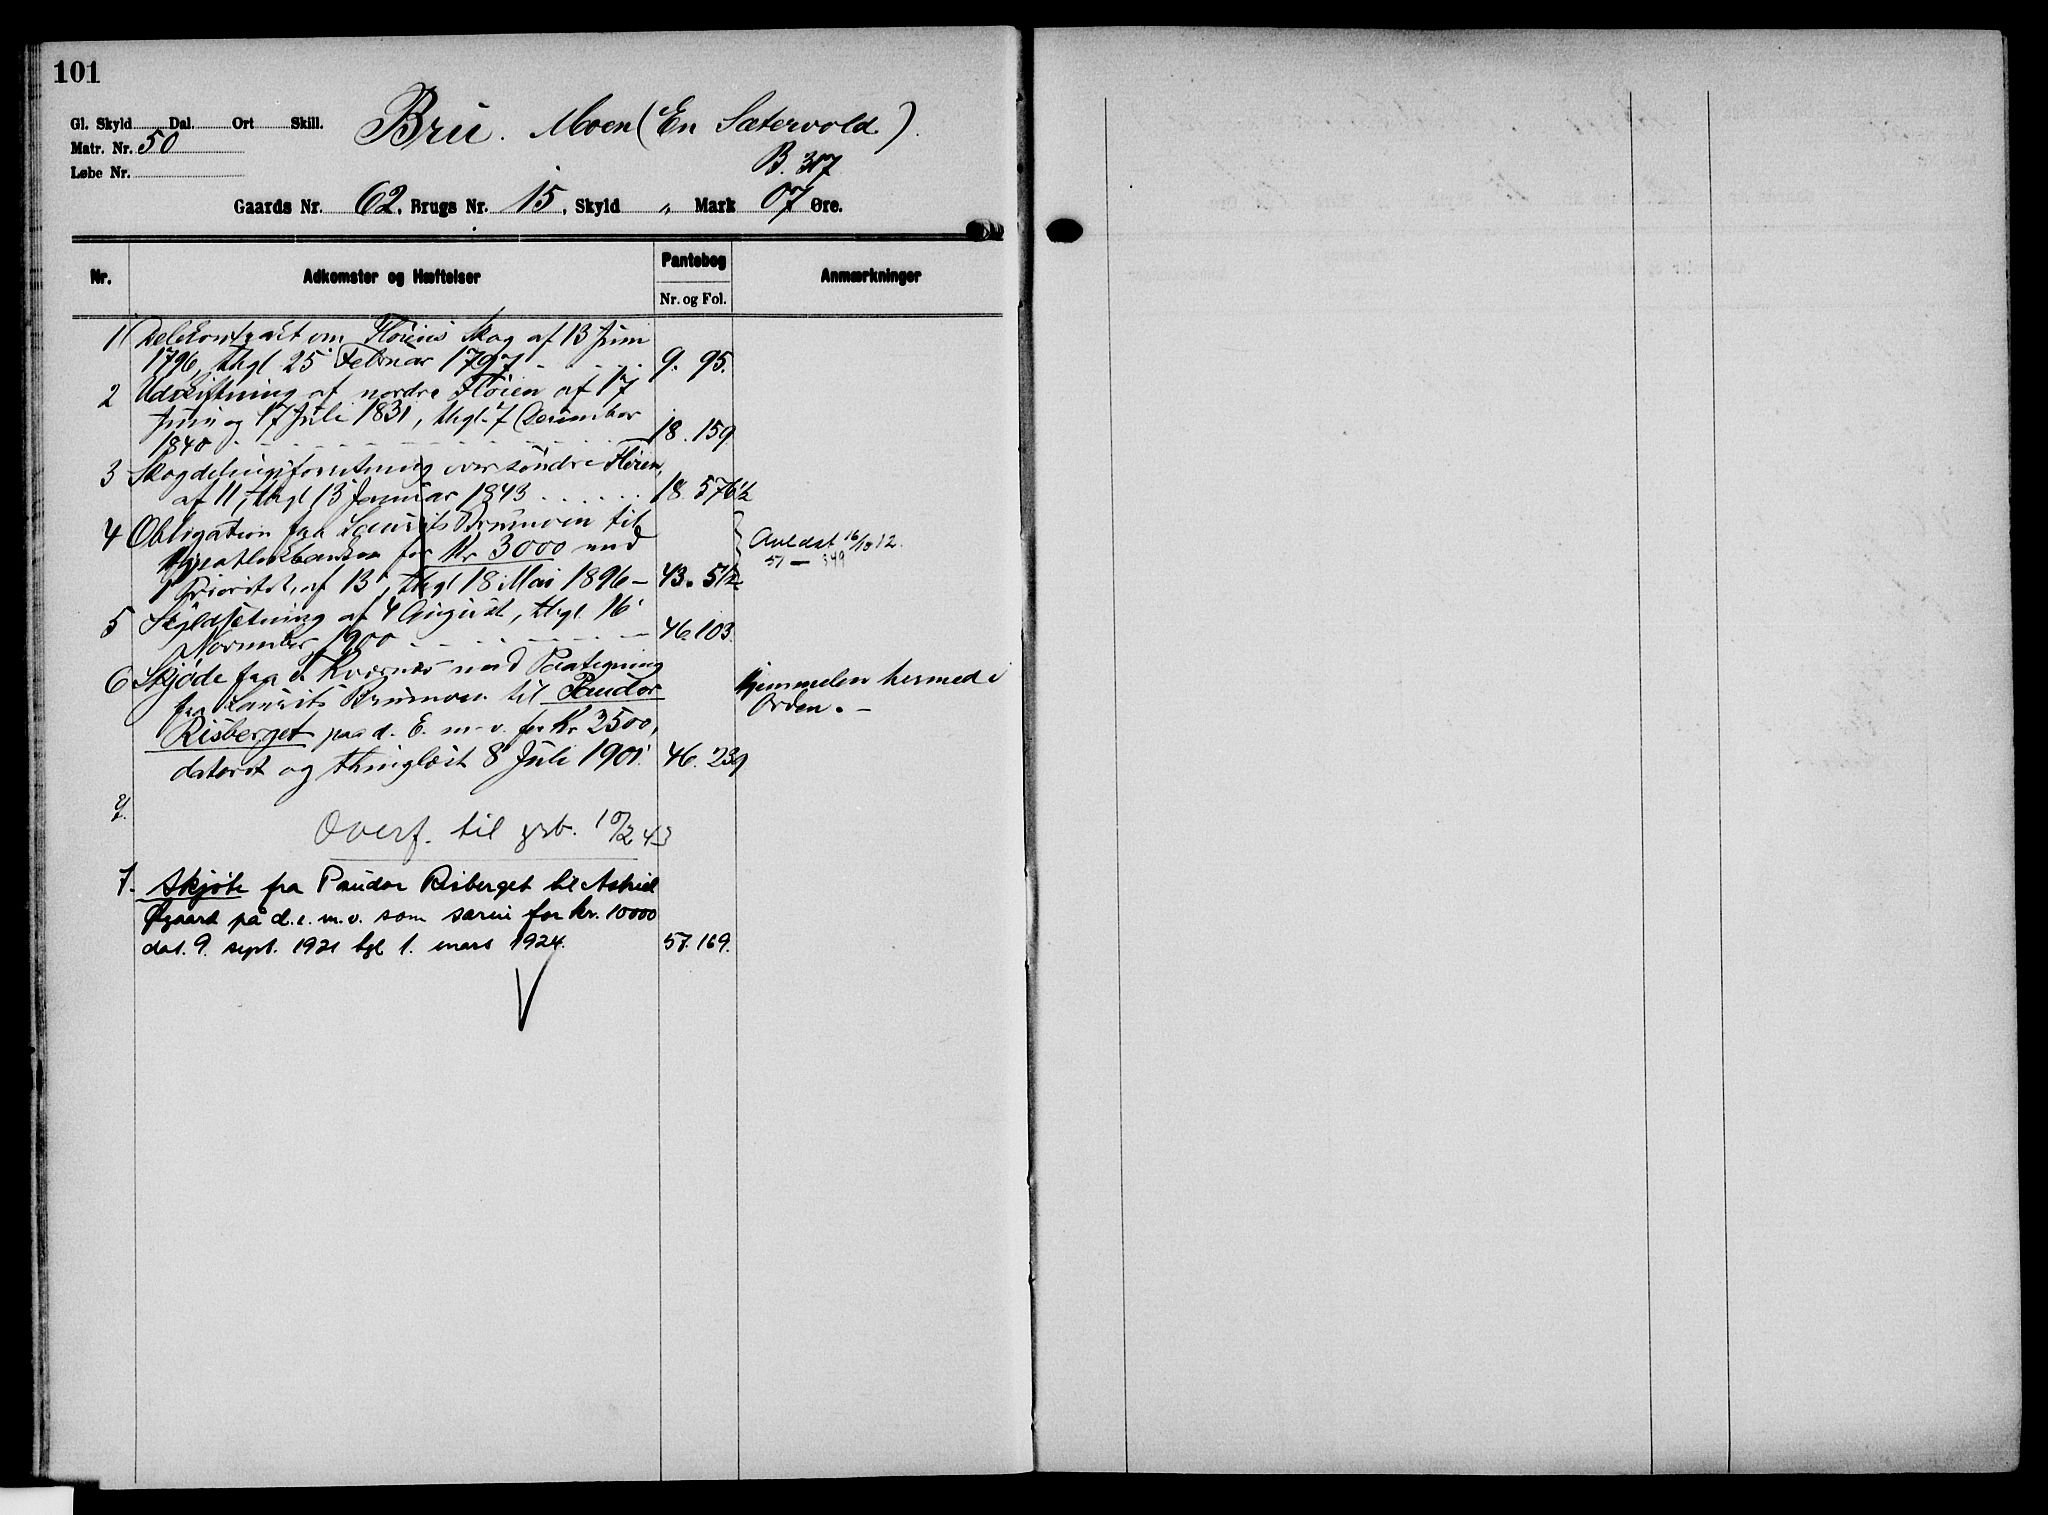 101
Gl. Skyld Dal. Ort Skill.
Bru. Moen (En Sætervold.)
Matr. Nr. 50
Løbe Nr.
B. 317
Gaards Nr. 62, Brugs Nr. 15, Skyld „ Mark 07 Øre.
Nr. Adkomster og Hæftelser Pantebog Anmærkninger
Nr. og Fol.
1 Delekontrakt om Fløiens Skog af 13 Juni
1796, thgl 25 Februar 1797 9. 95.
2 Udskiftning af nordre Fløien af 17
Juni og 17 Juli 1831, thgl. 7 December
1840 18. 159.
3 Skogdelingsforretning over søndre Fløien,
af 11, thgl 13 Januar 1843 18. 576½
4 Obligation fra Laurits Brumoen til
Hypothekbanken for Kr 3000 med Avldst 16/10 12.
51 - 349
1 Prioritet, af 13, thgl 18 Mai 1896 — 43. 512
5 Skyldsetning af 4 August, thgl. 16
November 1900 46. 103.
6 Skjøde fra Kværnæs med Paategning
fra Laurits Brumoen til Paudor
Hjemmelen hermed i
Orden. —
Risberget paa d. E. m. v. for Kr 2500,
dateret og thinglæst 8 Juli 1901. 46. 239
7.
Overf. til grb. 10/2 43
7. Skjøte fra Paudor Risberget til Astrid
Øgaard på d. e. m. v. som særeie for kr. 10000
dat. 9. sept. 1921 tgl 1. mars 1924. 57. 169.